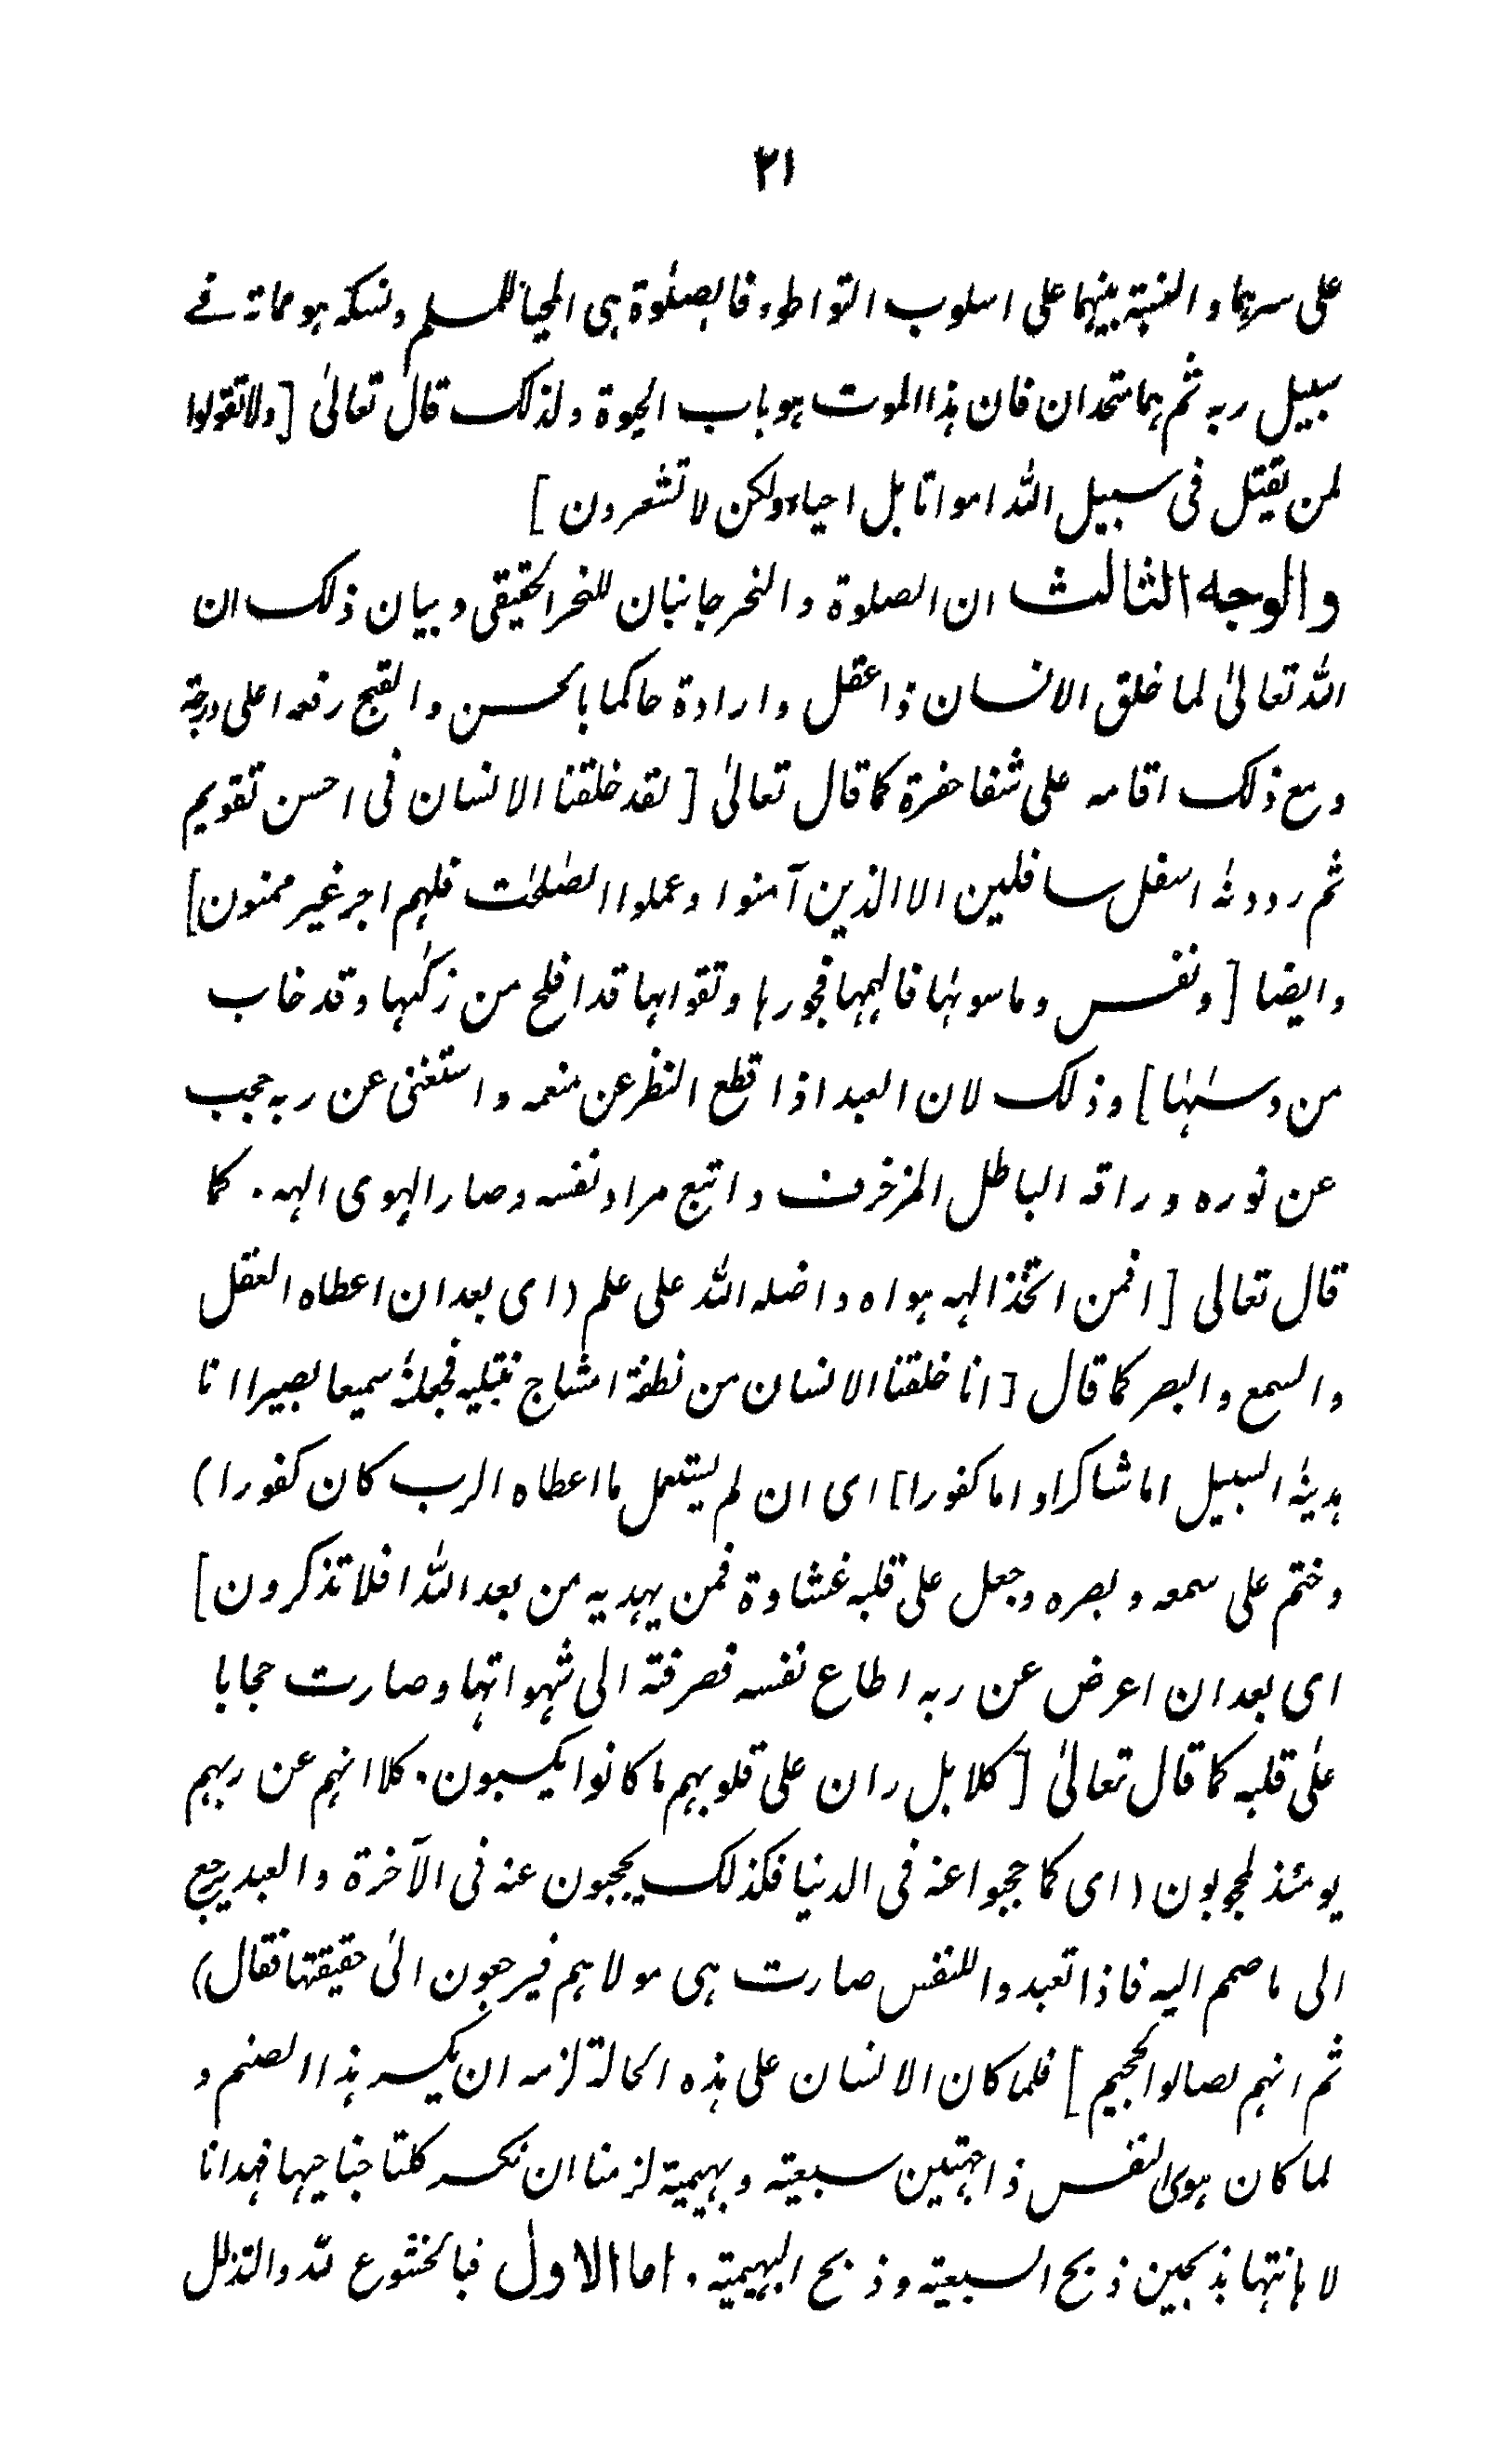 ۲۱
على سرهما والنسبة بينهما على اسلوب التواطوء فالصلٰوة هى المحيا للمسلم ونسكه هو مماته فے
سبيل ربه ثم هما متحدان فان هذا الموت هو باب الحيوة ولذلك قال تعالىٰ [ولا تقولوا
لمن يقتل فى سبيل الله امواتا بل احياء ولكن لا تشعرون]
والوجه الثالث ان الصلوة والنحر جانبان للنحر الحقيقى وبيان ذلك ان
الله تعالىٰ لما خلق الانسان ذا عقل وارادة حاكما بالحسن والقبح رفعه اعلى درجة
ومع ذلك اقامه على شفا حفرة كما قال تعالىٰ [لقد خلقنا الانسان فى احسن تقويم
ثم رددنٰه اسفل سافلين الا الذين آمنوا وعملوا الصٰلحٰت فلهم اجر غير ممنون]
وايضا [ونفس وما سوىٰها فالهمها فجورها وتقواها قد افلح من زكٰىها وقد خاب
من دسٰىٰها] وذلك لان العبد اذا قطع النظر عن منعمه واستغنى عن ربه حجب
عن نوره وراقه الباطل المزخرف واتبع مراد نفسه وصار الهوى الهه ۰ كما
قال تعالى [افمن اتخذ الهه هواه واضله الله على علم (اى بعد ان اعطاه العقل
والسمع والبصر كما قال [انا خلقنا الانسان من نطفة امشاج نبتليه فجعلنٰه سميعا بصيرا انا
هدينٰه السبيل اما شاكرا واما كفورا] اى ان لم يستعمل ما اعطاه الرب كان كفورا)
وختم على سمعه وبصره وجعل على قلبه غشاوة فمن يهديه من بعد الله افلا تذكرون]
اى بعد ان اعرض عن ربه اطاع نفسه فصرفته الى شهواتها وصارت حجابا
علىٰ قلبه كما قال تعالىٰ [كلا بل ران على قلوبهم ما كانوا يكسبون ۰ كلا انهم عن ربهم
يومئذ لمحجوبون (اى كما حجبوا عنه فى الدنيا فكذلك يحجبون عنه فى الآخرة والعبد يرجع
الى ما صمم اليه فاذا تعبدوا للنفس صارت هى مولاهم فيرجعون الىٰ حقيقتها فقال)
ثم انهم لصالوا الجحيم] فلما كان الانسان على هذه الحالة لزمه ان يكسر هذا الصنم و
لما كان هوىٰ النفس ذا جهتين سبعية وبهيمية لزمنا ان نكسر كلتا جناحيها فهدانا
لاهانتها بذبحين ذبح السبعية وذبح البهيمية ۰ اما الاول فبالخشوع لله والتذلل